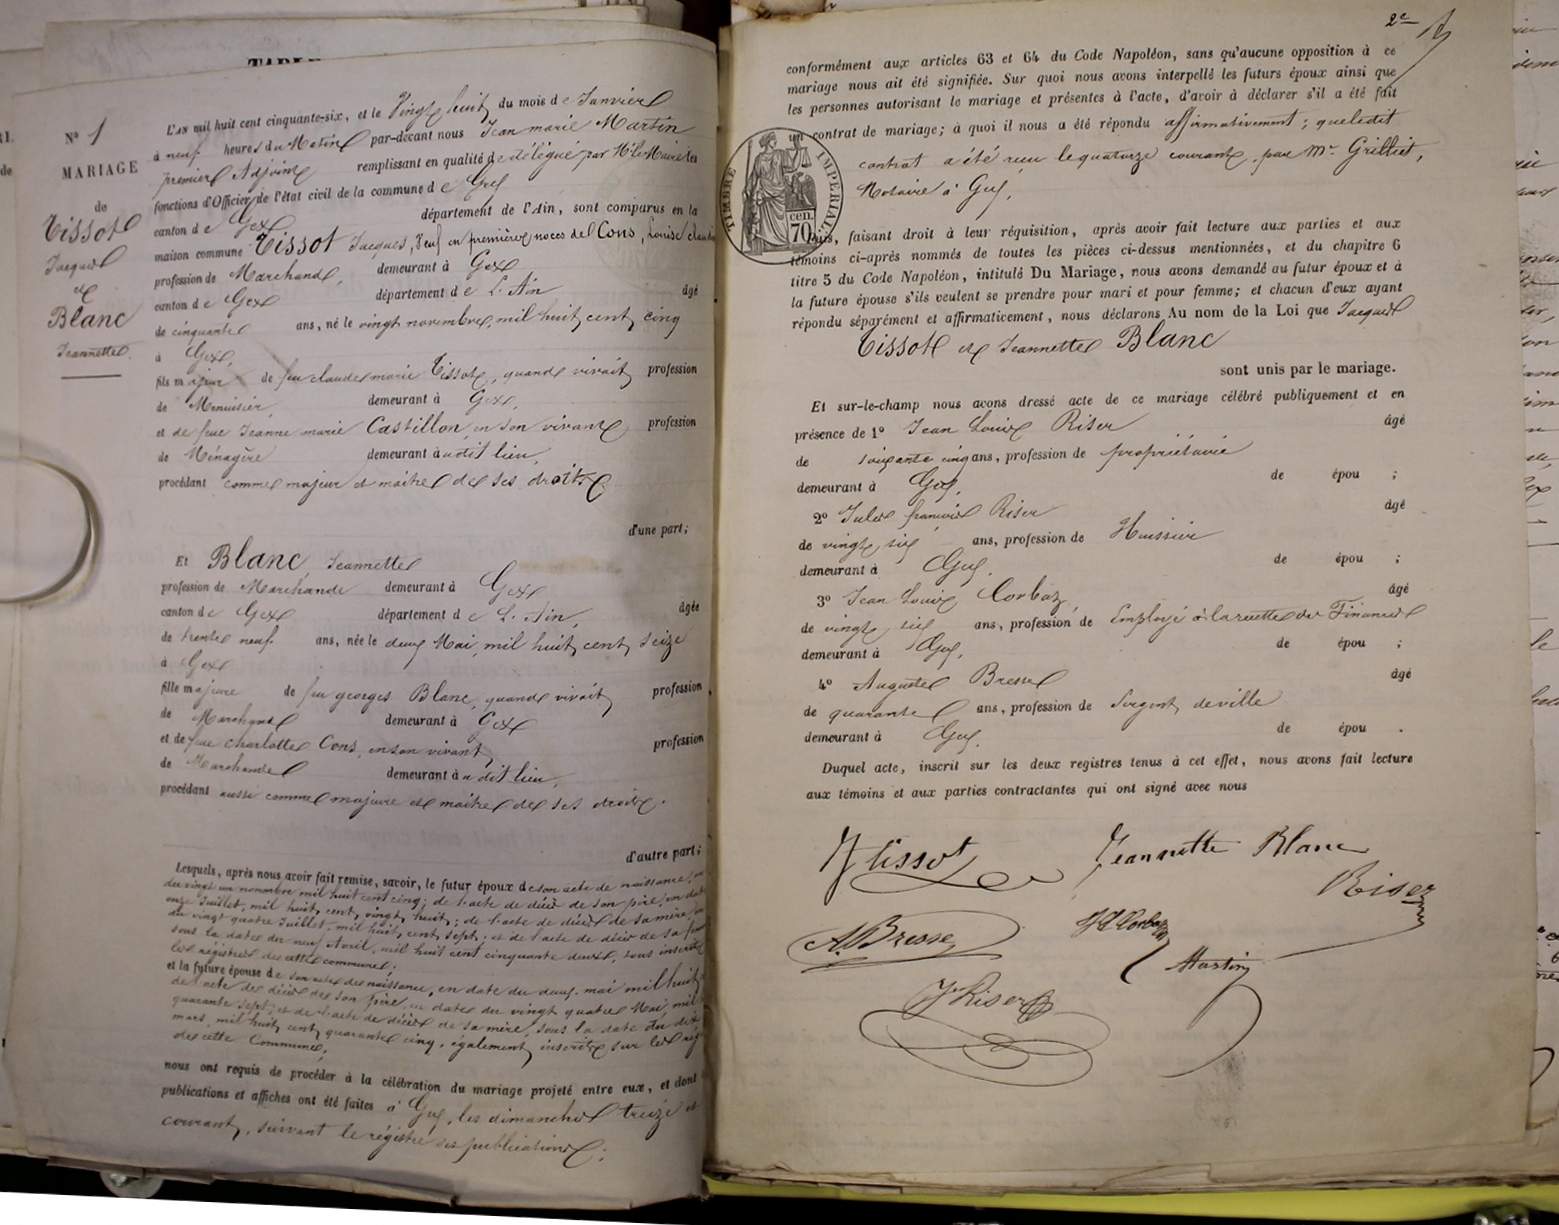 TABLE
N° 1
MARIAGE
de
Tissot
Jacques
et
Blanc
Jeannette.
L'AN mil huit cent cinquante-six, et le Vingt huit du mois de Janvier
à neuf heures du Matin par-devant nous Jean marie Martin
premier Adjoint remplissant en qualité de délégué par Mr le Maire les
fonctions d'Officier de l'état civil de la commune de Gex
canton de Gex département de l'Ain, sont comparus en la
maison commune Tissot Jacques, Veuf en premières noces de Cons, Louise
profession de Marchand, demeurant à Gex
canton de Gex département de L'Ain âgé
de cinquante ans, né le vingt novembre, mil huit cent cinq
à Gex,
fils majeur de feu claude marie Tissot, quand vivait profession
de Menuisier, demeurant à Gex,
et de feue Jeanne marie Castillon, en son vivant profession
de Ménagère demeurant au dit lieu,
procédant comme majeur et maître de ses droits
d'une part;
Et Blanc, Jeannette
profession de Marchande demeurant à Gex
canton de Gex département de L'Ain, âgée
de trente neuf ans, née le deux Mai, mil huit cent seize
à Gex
fille majeure de feu georges Blanc, quand vivait profession
de Marchand demeurant à Gex
et de feue charlotte Cons, en son vivant profession
de Marchande demeurant au dit lieu,
procédant aussi comme majeure et maître de ses droits.
d'autre part;
Lesquels, après nous avoir fait remise, savoir, le futur époux de son acte de naissance,
du vingt un novembre mil huit cent cinq; de l'acte de décès de son père, en date
onze Juillet, mil huit cent vingt huit; de l'acte de décès de sa mère,
du vingt quatre Juillet, mil huit cent sept; et de l'acte de décès de sa
sous la date du neuf Avril, mil huit cent cinquante deux, tous inscrits
les régistres de cette commune;
et la future épouse de son acte de naissance, en date du deux mai mil huit
de l'acte de décès de son père, en date du vingt quatre Mai, mil
quarante sept; et de l'acte de décès de sa mère, sous la date du dix
mars, mil huit cent quarante cinq, également inscrits sur les
de cette Commune,
nous ont requis de procéder à la célébration du mariage projeté entre eux, et dont
publications et affiches ont été faites à Gex, les dimanches treize et
courant, suivant le régistre des publications;
2e
conformément aux articles 63 et 64 du Code Napoléon, sans qu'aucune opposition à ce
mariage nous ait été signifiée. Sur quoi nous avons interpellé les futurs époux ainsi que
les personnes autorisant le mariage et présentes à l'acte, d'avoir à déclarer s'il a été fait
un contrat de mariage; à quoi il nous a été répondu affirmativement; que ledit
contrat a été reçu le quatorze courant, par Mr Grilliet,
Notaire à Gex,
TIMBRE IMPÉRIAL
70 cen.
Puis, faisant droit à leur réquisition, après avoir fait lecture aux parties et aux
témoins ci-après nommés de toutes les pièces ci-dessus mentionnées, et du chapitre 6
titre 5 du Code Napoléon, intitulé Du Mariage, nous avons demandé au futur époux et à
la future épouse s'ils veulent se prendre pour mari et pour femme; et chacun d'eux ayant
répondu séparément et affirmativement, nous déclarons Au nom de la Loi que Jacques
Tissot et Jeannette Blanc
sont unis par le mariage.
Et sur-le-champ nous avons dressé acte de ce mariage célébré publiquement et en
présence de 1° Jean Louis Riser âgé
de soixante cinq ans, profession de propriétaire
demeurant à Gex, de épou ;
2° Jules françois Riser âgé
de vingt six ans, profession de Huissier
demeurant à Gex, de épou ;
3° Jean Louis Corbaz, âgé
de vingt six ans, profession de Employé à la recette des Finances
demeurant à Gex, de épou ;
4° Auguste Bresse âgé
de quarante ans, profession de Sergent de ville
demeurant à Gex. de épou .
Duquel acte, inscrit sur les deux registres tenus à cet effet, nous avons fait lecture
aux témoins et aux parties contractantes qui ont signé avec nous
J Tissot Jeannette Blanc
Riser
A. Bresse J L Corbaz
Martin
Js Riser